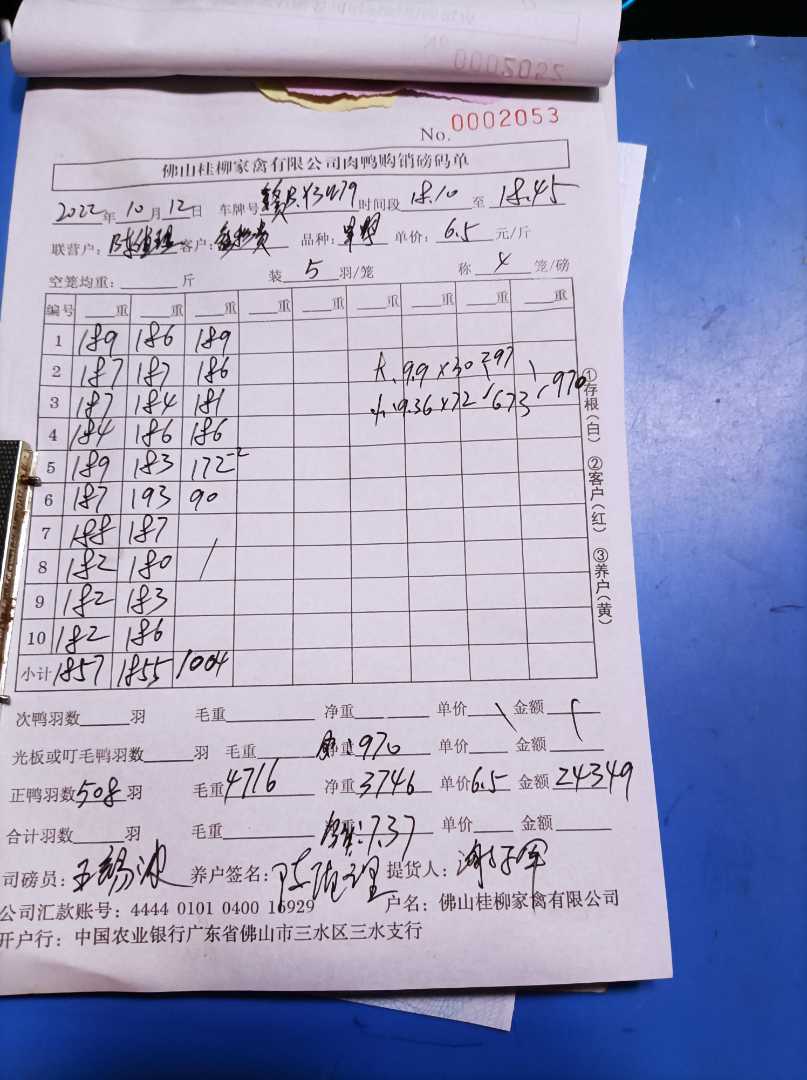 0002052
No. 0002053
佛山桂柳家禽有限公司肉鸭购销磅码单
2022年 10月 12日 车牌号 时间段 18.10 至 18.45
联营户: 客户: 品种: 单价: 6.5 元/斤
空笼均重: 斤 装 5 羽/笼 称 4 笼/磅
编号 重 重 重 重 重 重 重 重 重
1 189 186 189
2 187 187 186 大. 9.9×30 297
3 187 184 181 小. 9.36×72 673 970
4 184 186 186
5 189 183 172-2
6 187 193 90
7 188 187
8 182 180 /
9 182 183
10 182 186
小计 1857 1855 1004
①存根(白) ②客户(红) ③养户(黄)
次鸭羽数 羽 毛重 净重 单价 金额
光板或叮毛鸭羽数 羽 毛重 净重 970 单价 金额
正鸭羽数 508 羽 毛重 4716 净重 3746 单价 6.5 金额 24349
合计羽数 羽 毛重 净重 7.37 单价 金额
司磅员: 王锡波 养户签名: 提货人:
公司汇款账号: 4444 0101 0400 16929 户名: 佛山桂柳家禽有限公司
开户行: 中国农业银行广东省佛山市三水区三水支行